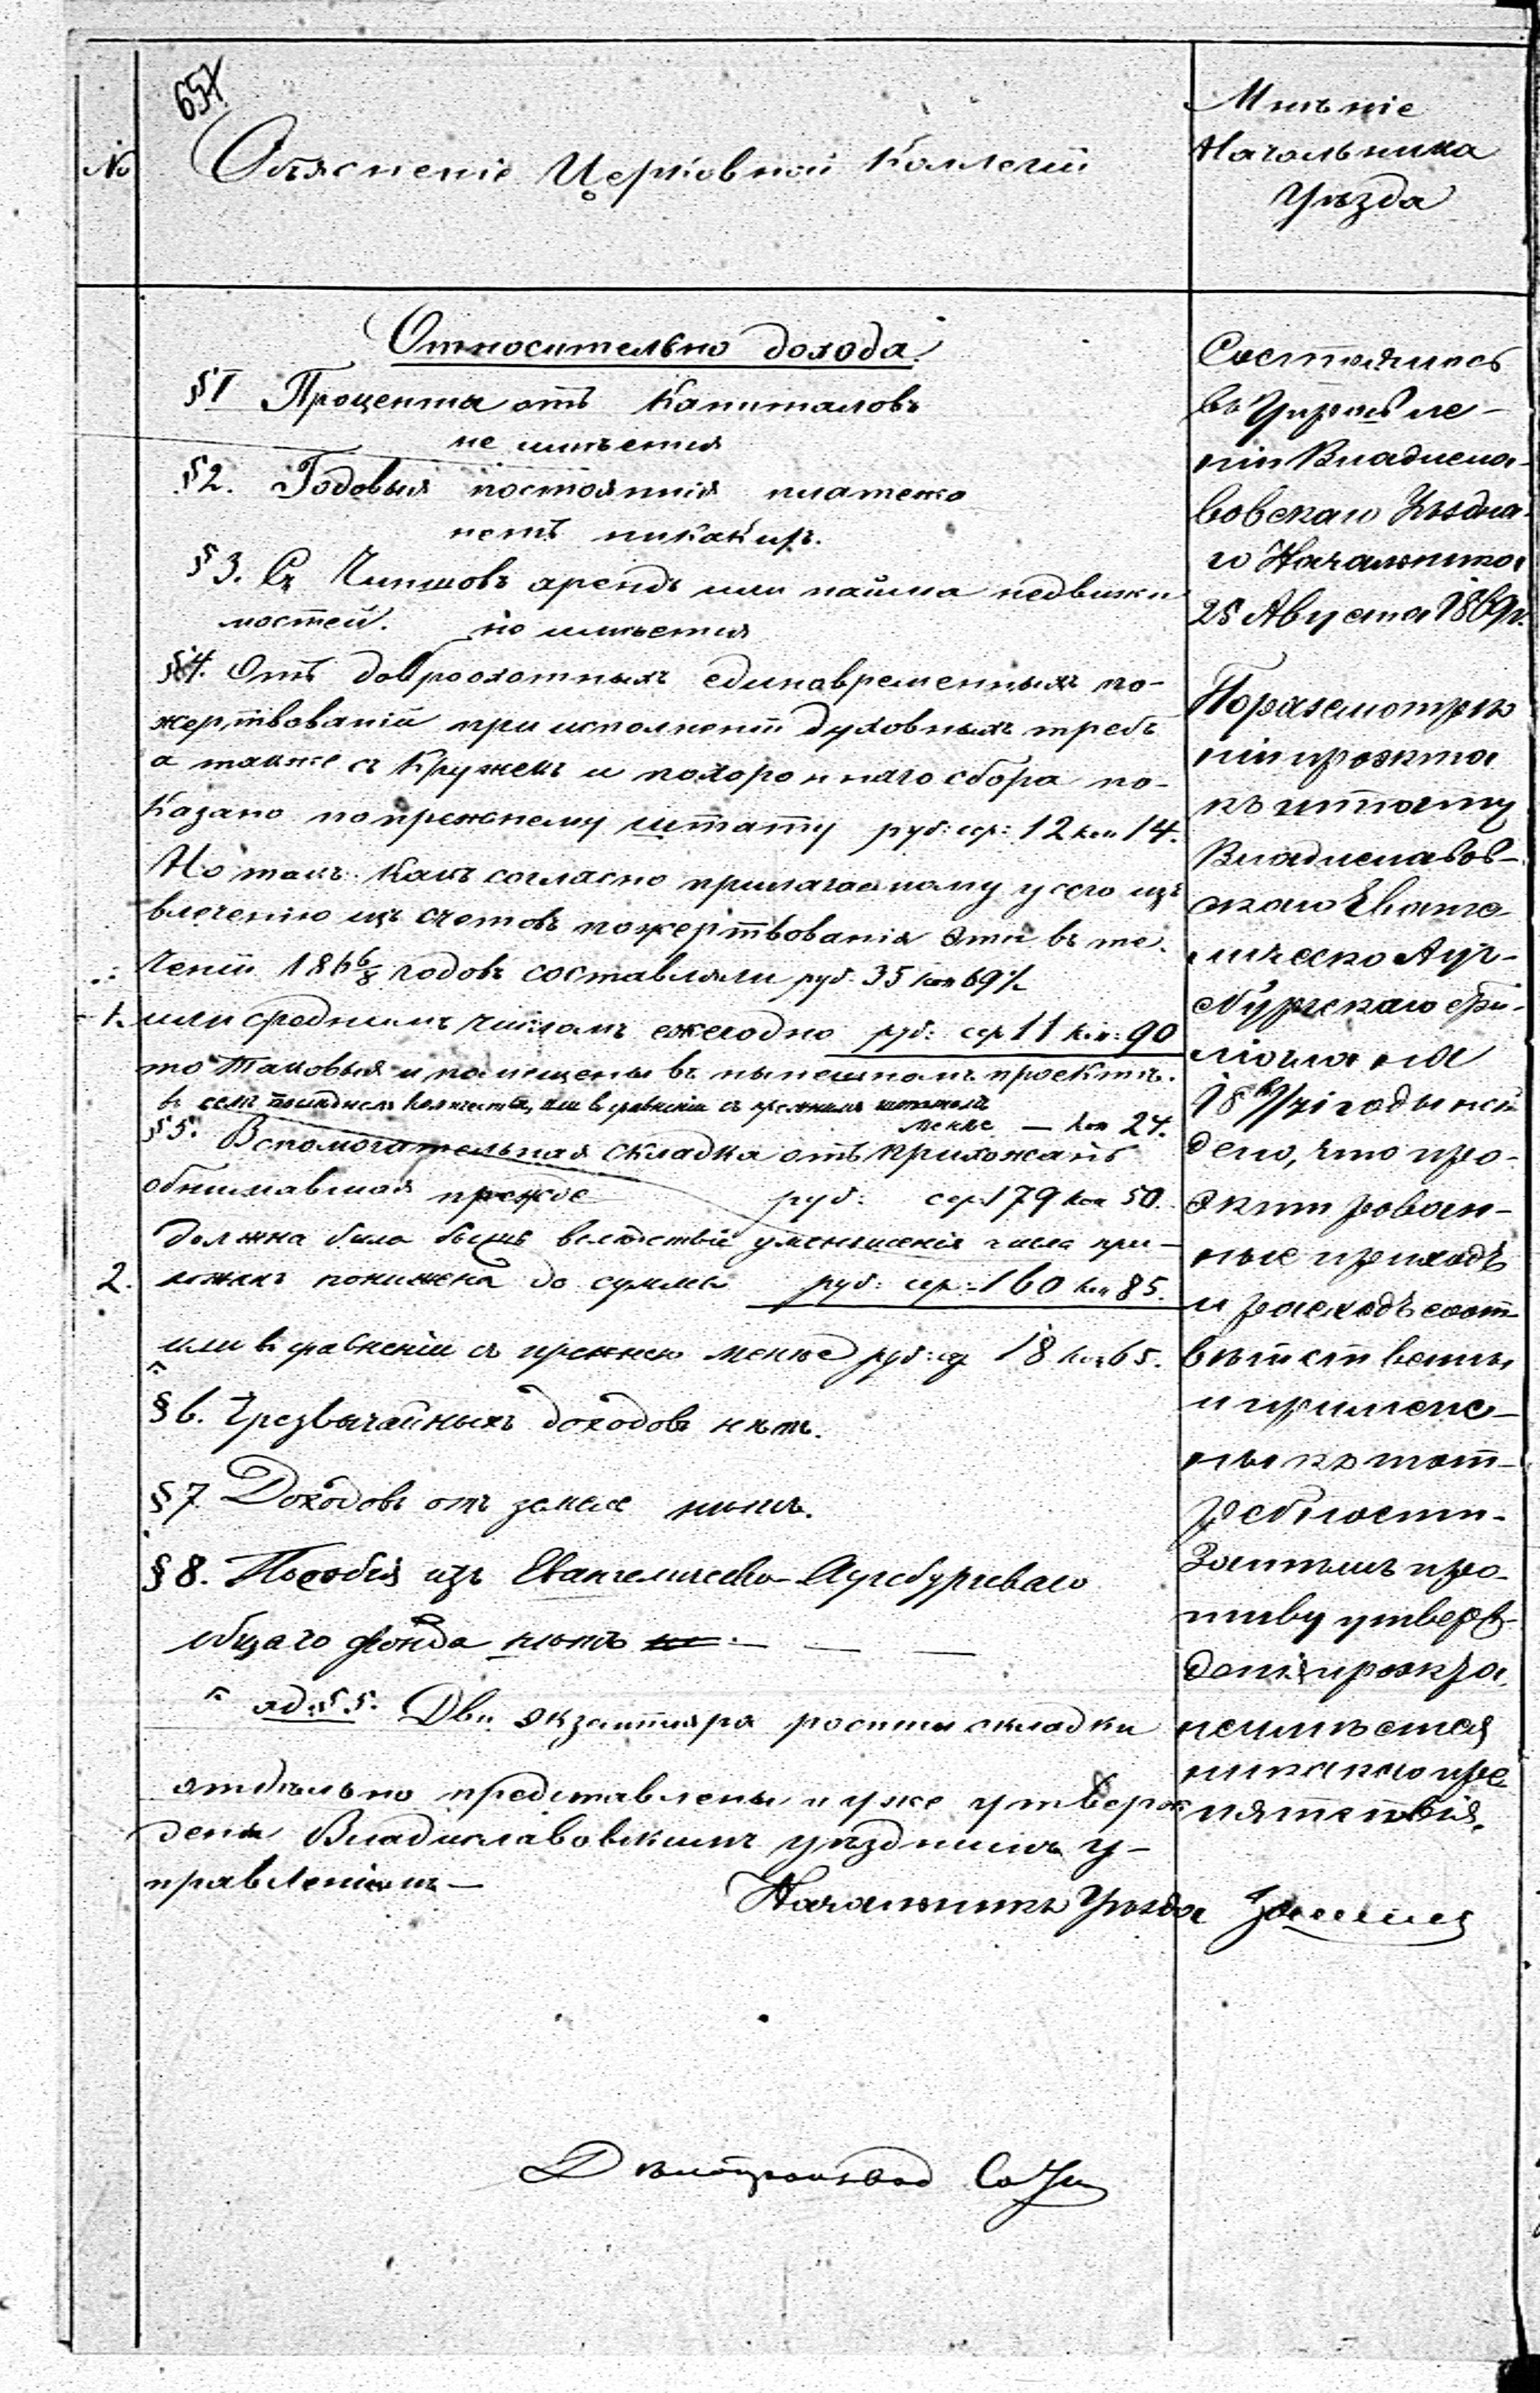 657
№
Объясненіе Церковной Коллегіи
Мнѣніе
Начальника
Уѣзда
Относительно дохода
§1 Проценты отъ Капиталовъ
не имѣется
§2. Годовыя постоянныя платежа
нетъ никакихъ.
§3. Съ Чиншовъ арендъ или найма недвижи
мостей. не имѣется
§4. Отъ доброохотныхъ единовременныхъ по-
жертвованій при исполненіи духовныхъ требъ
а также съ Кружекъ и похороннаго сбора по-
Казано попрежнему штату руб: сер: 12 коп 14.
Но такъ Какъ согласно прилагаемому у сего из
влеченію изъ счетовъ пожертвованія эти въ те-
ченіи 186 6/8 годовъ составляли руб. 35 коп 69½
1. или среднимъ числомъ ежегодно руб: сер 11 коп: 90
то таковыя и помещены въ нынешномъ проектѣ.
въ семъ последнемъ количествѣ, или в сравненіи съ прежнимъ штатомъ
менѣе — коп 24.
§5. Вспомогательная складка отъ прихожанъ
обнимавшая прежде руб: сер: 179 коп 50.
должна была быть вслѣдствіе уменьшенія числа при-
2. хожанъ понижена до суммы руб: сер: 160 коп 85.
или въ сравненіи съ прежнею менѣе руб: сер 18 коп 65.
§6. Чрезвычайныхъ доходовъ нѣтъ.
§7. Доходовъ отъ земли нѣтъ.
§8. Пособія изъ Евангелическо-Аугсбургскаго
общаго фонда нѣтъ — — —
ad. §5. Два экземпляра росписи складки
отдѣльно представлены и уже утверж
дены Владиславовскимъ уѣзднымъ у-
правленіемъ —
Состоялось
въ Управле-
ніи Владисла-
вовскаго Уѣздна-
го Начальника
25 Августа 1869 г.
По разсмотрѣ
ніи проэкта
къ штату
Владиславов-
скаго Еванге
лическо Ауг-
сбургскаго фи-
ліала на
18 69/71 годы най
дено, что про-
эктирован-
ные приходъ
и расходъ соот
вѣтственны
и примене-
ны къ пот-
ребности.
Затѣмъ про-
тиву утверж-
денія проэкта
неимѣется
никакого пре
пятствія.
Начальникъ Уѣзда
Дѣлопроизвод